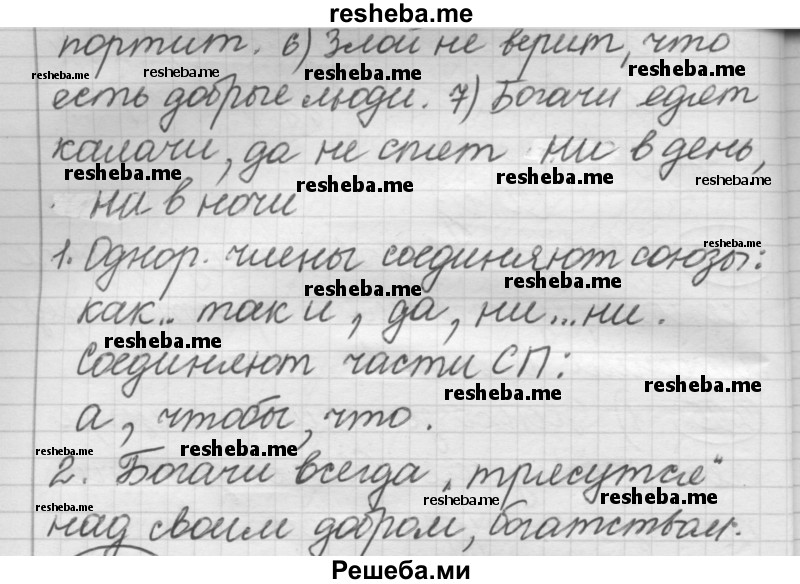 resheba.me
портит. 6) Злой не верит, что
resheba.me resheba.me resheba.me resheba.me
есть добрые люди. 7) Богачи едят
калачи, да не спят ни в день,
resheba.me resheba.me resheba.me resheba.me
ни в ночи
resheba.me
1. Однор. члены соединяют союзы:
resheba.me resheba.me
как.. так и, да, ни...ни.
resheba.me
Соединяют части СП:
resheba.me resheba.me
а, чтобы, что.
resheba.me resheba.me
2. Богачи всегда „трясутся"
resheba.me resheba.me resheba.me
над своим добром, богатством.
Решеба.ми